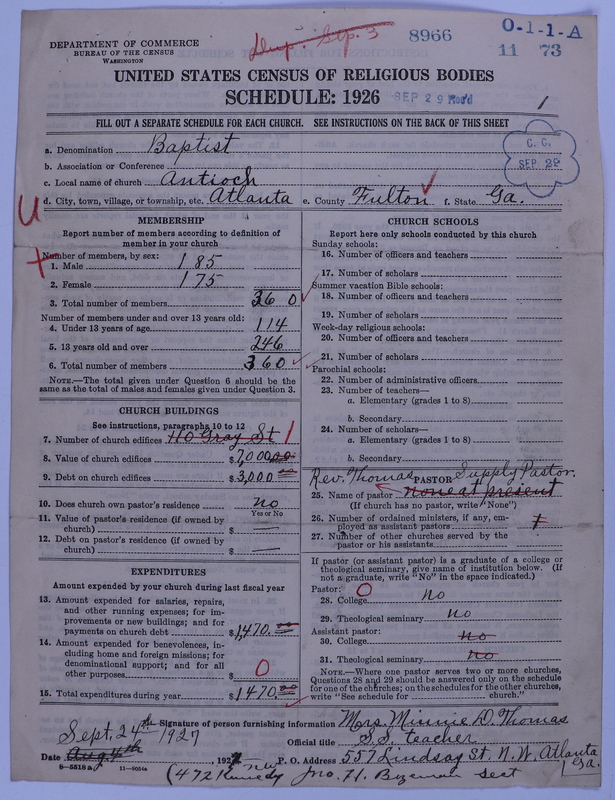 DEPARTMENT OF COMMERCE
BUREAU OF THE CENSUS
WASHINGTON
Dup. Sep. 3
8966
O-1-1-A
11 73
UNITED STATES CENSUS OF RELIGIOUS BODIES
SCHEDULE: 1926
SEP 29 Rec'd
1
FILL OUT A SEPARATE SCHEDULE FOR EACH CHURCH. SEE INSTRUCTIONS ON THE BACK OF THIS SHEET
C. C.
SEP 29
a. Denomination Baptist
b. Association or Conference
c. Local name of church Antioch
d. City, town, village, or township, etc. Atlanta e. County Fulton f. State Ga.
U
MEMBERSHIP
Report number of members according to definition of
member in your church
Number of members, by sex:
1. Male 185
2. Female 175
3. Total number of members 360
Number of members under and over 13 years old:
4. Under 13 years of age 114
5. 13 years old and over 246
6. Total number of members 360
NOTE.—The total given under Question 6 should be the
same as the total of males and females given under Question 3.
CHURCH BUILDINGS
See instructions, paragraphs 10 to 12
7. Number of church edifices 110 Gray St 1
8. Value of church edifices $7,000.00
9. Debt on church edifices $3,000.00
10. Does church own pastor's residence no
Yes or No
11. Value of pastor's residence (if owned by
church) $ —
12. Debt on pastor's residence (if owned by
church) $ —
EXPENDITURES
Amount expended by your church during last fiscal year
13. Amount expended for salaries, repairs,
and other running expenses; for im-
provements or new buildings; and for
payments on church debt $1,470.00
14. Amount expended for benevolences, in-
cluding home and foreign missions; for
denominational support; and for all
other purposes $ 0
15. Total expenditures during year $1470.00
CHURCH SCHOOLS
Report here only schools conducted by this church
Sunday schools:
16. Number of officers and teachers
17. Number of scholars
Summer vacation Bible schools:
18. Number of officers and teachers
19. Number of scholars
Week-day religious schools:
20. Number of officers and teachers
21. Number of scholars
Parochial schools:
22. Number of administrative officers
23. Number of teachers—
a. Elementary (grades 1 to 8)
b. Secondary
24. Number of scholars—
a. Elementary (grades 1 to 8)
b. Secondary
Rev. Thomas PASTOR Supply Pastor.
25. Name of pastor none at present
(If church has no pastor, write "None")
26. Number of ordained ministers, if any, em-
ployed as assistant pastors
27. Number of other churches served by the
pastor or his assistants
If pastor (or assistant pastor) is a graduate of a college or
theological seminary, give name of institution below. (If
not a graduate, write "No" in the space indicated.)
Pastor: 0
28. College no
29. Theological seminary no
Assistant pastor:
30. College no
31. Theological seminary no
NOTE.—Where one pastor serves two or more churches,
Questions 28 and 29 should be answered only on the schedule
for one of the churches; on the schedules for the other churches,
write "See schedule for church."
Sept. 24th 1927
Signature of person furnishing information Mrs. Minnie D. Thomas
Official title S.S. teacher
Date Aug. 4th, 1927 P. O. Address 557 Lindsay St. N.W. Atlanta Ga.
8—5518a 11—9054a
(472 Kennedy new Jno. H. Bozeman Sect